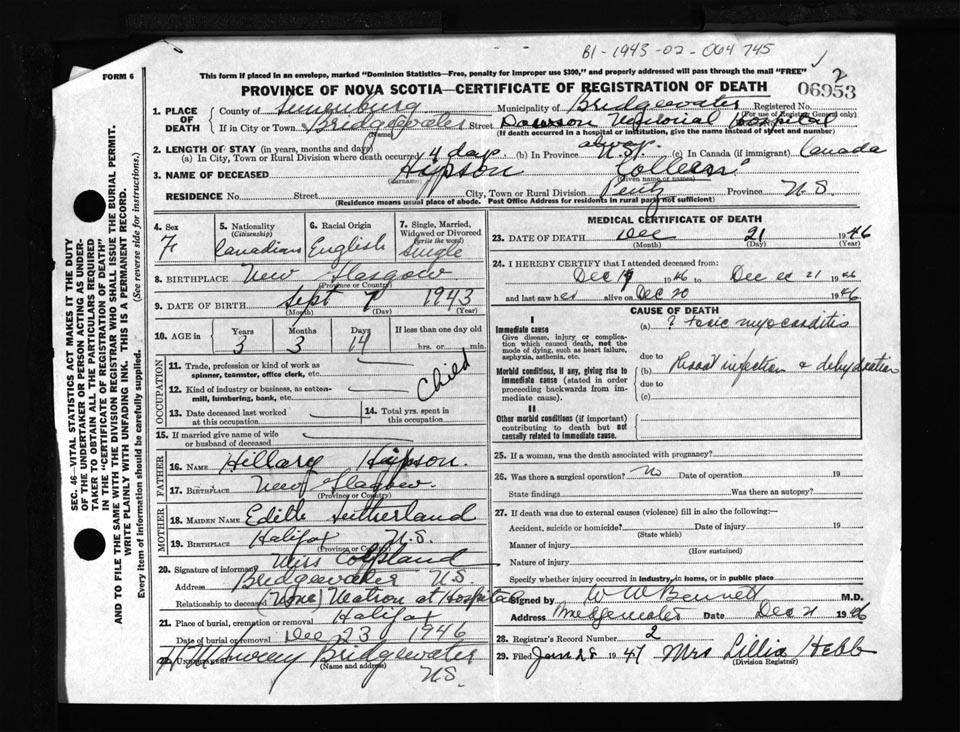 B1-1943-02-064745
2
FORM 6
This form if placed in an envelope, marked "Dominion Statistics—Free, penalty for improper use $300," and properly addressed will pass through the mail "FREE"
PROVINCE OF NOVA SCOTIA—CERTIFICATE OF REGISTRATION OF DEATH
06953
SEC. 46—VITAL STATISTICS ACT MAKES IT THE DUTY
OF THE UNDERTAKER OR PERSON ACTING AS UNDER-
TAKER TO OBTAIN ALL THE PARTICULARS REQUIRED
IN THE "CERTIFICATE OF REGISTRATION OF DEATH"
AND TO FILE THE SAME WITH THE DIVISION REGISTRAR WHO SHALL ISSUE THE BURIAL PERMIT.
WRITE PLAINLY WITH UNFADING INK. THIS IS A PERMANENT RECORD.
Every item of information should be carefully supplied. (See reverse side for instructions.)
1. PLACE OF DEATH County of Lunenburg Municipality of Bridgewater Registered No.
(For use of Registrar General only)
If in City or Town Bridgewater Street Dawson Memorial Hospital
(Name) (If death occurred in a hospital or institution, give the name instead of street and number)
2. LENGTH OF STAY (in years, months and days)
(a) In City, Town or Rural Division where death occurred 4 days (b) In Province always N.S. (c) In Canada (if immigrant) Canada
3. NAME OF DECEASED Colleen
(Surname) (Given name or names)
RESIDENCE No. Street City, Town or Rural Division Pentz Province N.S.
(Residence means usual place of abode. Post Office Address for residents in rural parts not sufficient)
4. Sex F
5. Nationality (Citizenship) Canadian
6. Racial Origin English
7. Single, Married, Widowed or Divorced (write the word) Single
8. BIRTHPLACE New Glasgow
(Province or Country)
9. DATE OF BIRTH Sept 7 1943
(Month) (Day) (Year)
10. AGE in Years 3 Months 3 Days 14 If less than one day old hrs. or min.
OCCUPATION
11. Trade, profession or kind of work as spinner, teamster, office clerk, etc.
Child
12. Kind of industry or business, as cotton-mill, lumbering, bank, etc.
13. Date deceased last worked at this occupation
14. Total yrs. spent in this occupation
15. If married give name of wife or husband of deceased
FATHER
16. NAME Hillary
17. BIRTHPLACE New Glasgow
(Province or Country)
MOTHER
18. MAIDEN NAME Edith Sutherland
19. BIRTHPLACE Halifax N.S.
(Province or Country)
20. Signature of informant Miss Copeland
Address Bridgewater N.S.
Relationship to deceased (None) Matron at Hospital
21. Place of burial, cremation or removal Halifax
Date of burial or removal Dec 23 1946
22. UNDERTAKER Bridgewater
(Name and address)
N.S.
MEDICAL CERTIFICATE OF DEATH
23. DATE OF DEATH Dec 21 1946
(Month) (Day) (Year)
24. I HEREBY CERTIFY that I attended deceased from:
Dec 19 1946 to Dec 21 1946
and last saw her alive on Dec 20 1946
CAUSE OF DEATH
I
Immediate cause
Give disease, injury or complication which caused death, not the mode of dying, such as heart failure, asphyxia, asthenia, etc.
(a) ? toxic myocarditis
due to
Morbid conditions, if any, giving rise to immediate cause (stated in order proceeding backwards from immediate cause).
(b) infection & dehydration
due to
(c)
II
Other morbid conditions (if important) contributing to death but not causally related to immediate cause.
25. If a woman, was the death associated with pregnancy?
26. Was there a surgical operation? no Date of operation 19
State findings Was there an autopsy?
27. If death was due to external causes (violence) fill in also the following:—
Accident, suicide or homicide? Date of injury 19
(State which)
Manner of injury
(How sustained)
Nature of injury
Specify whether injury occurred in industry, in home, or in public place
Signed by W W Bennett M.D.
Address Bridgewater Date Dec 21 1946
28. Registrar's Record Number 2
29. Filed Jan 28 1947 Mrs Lillia Hebb
(Division Registrar)